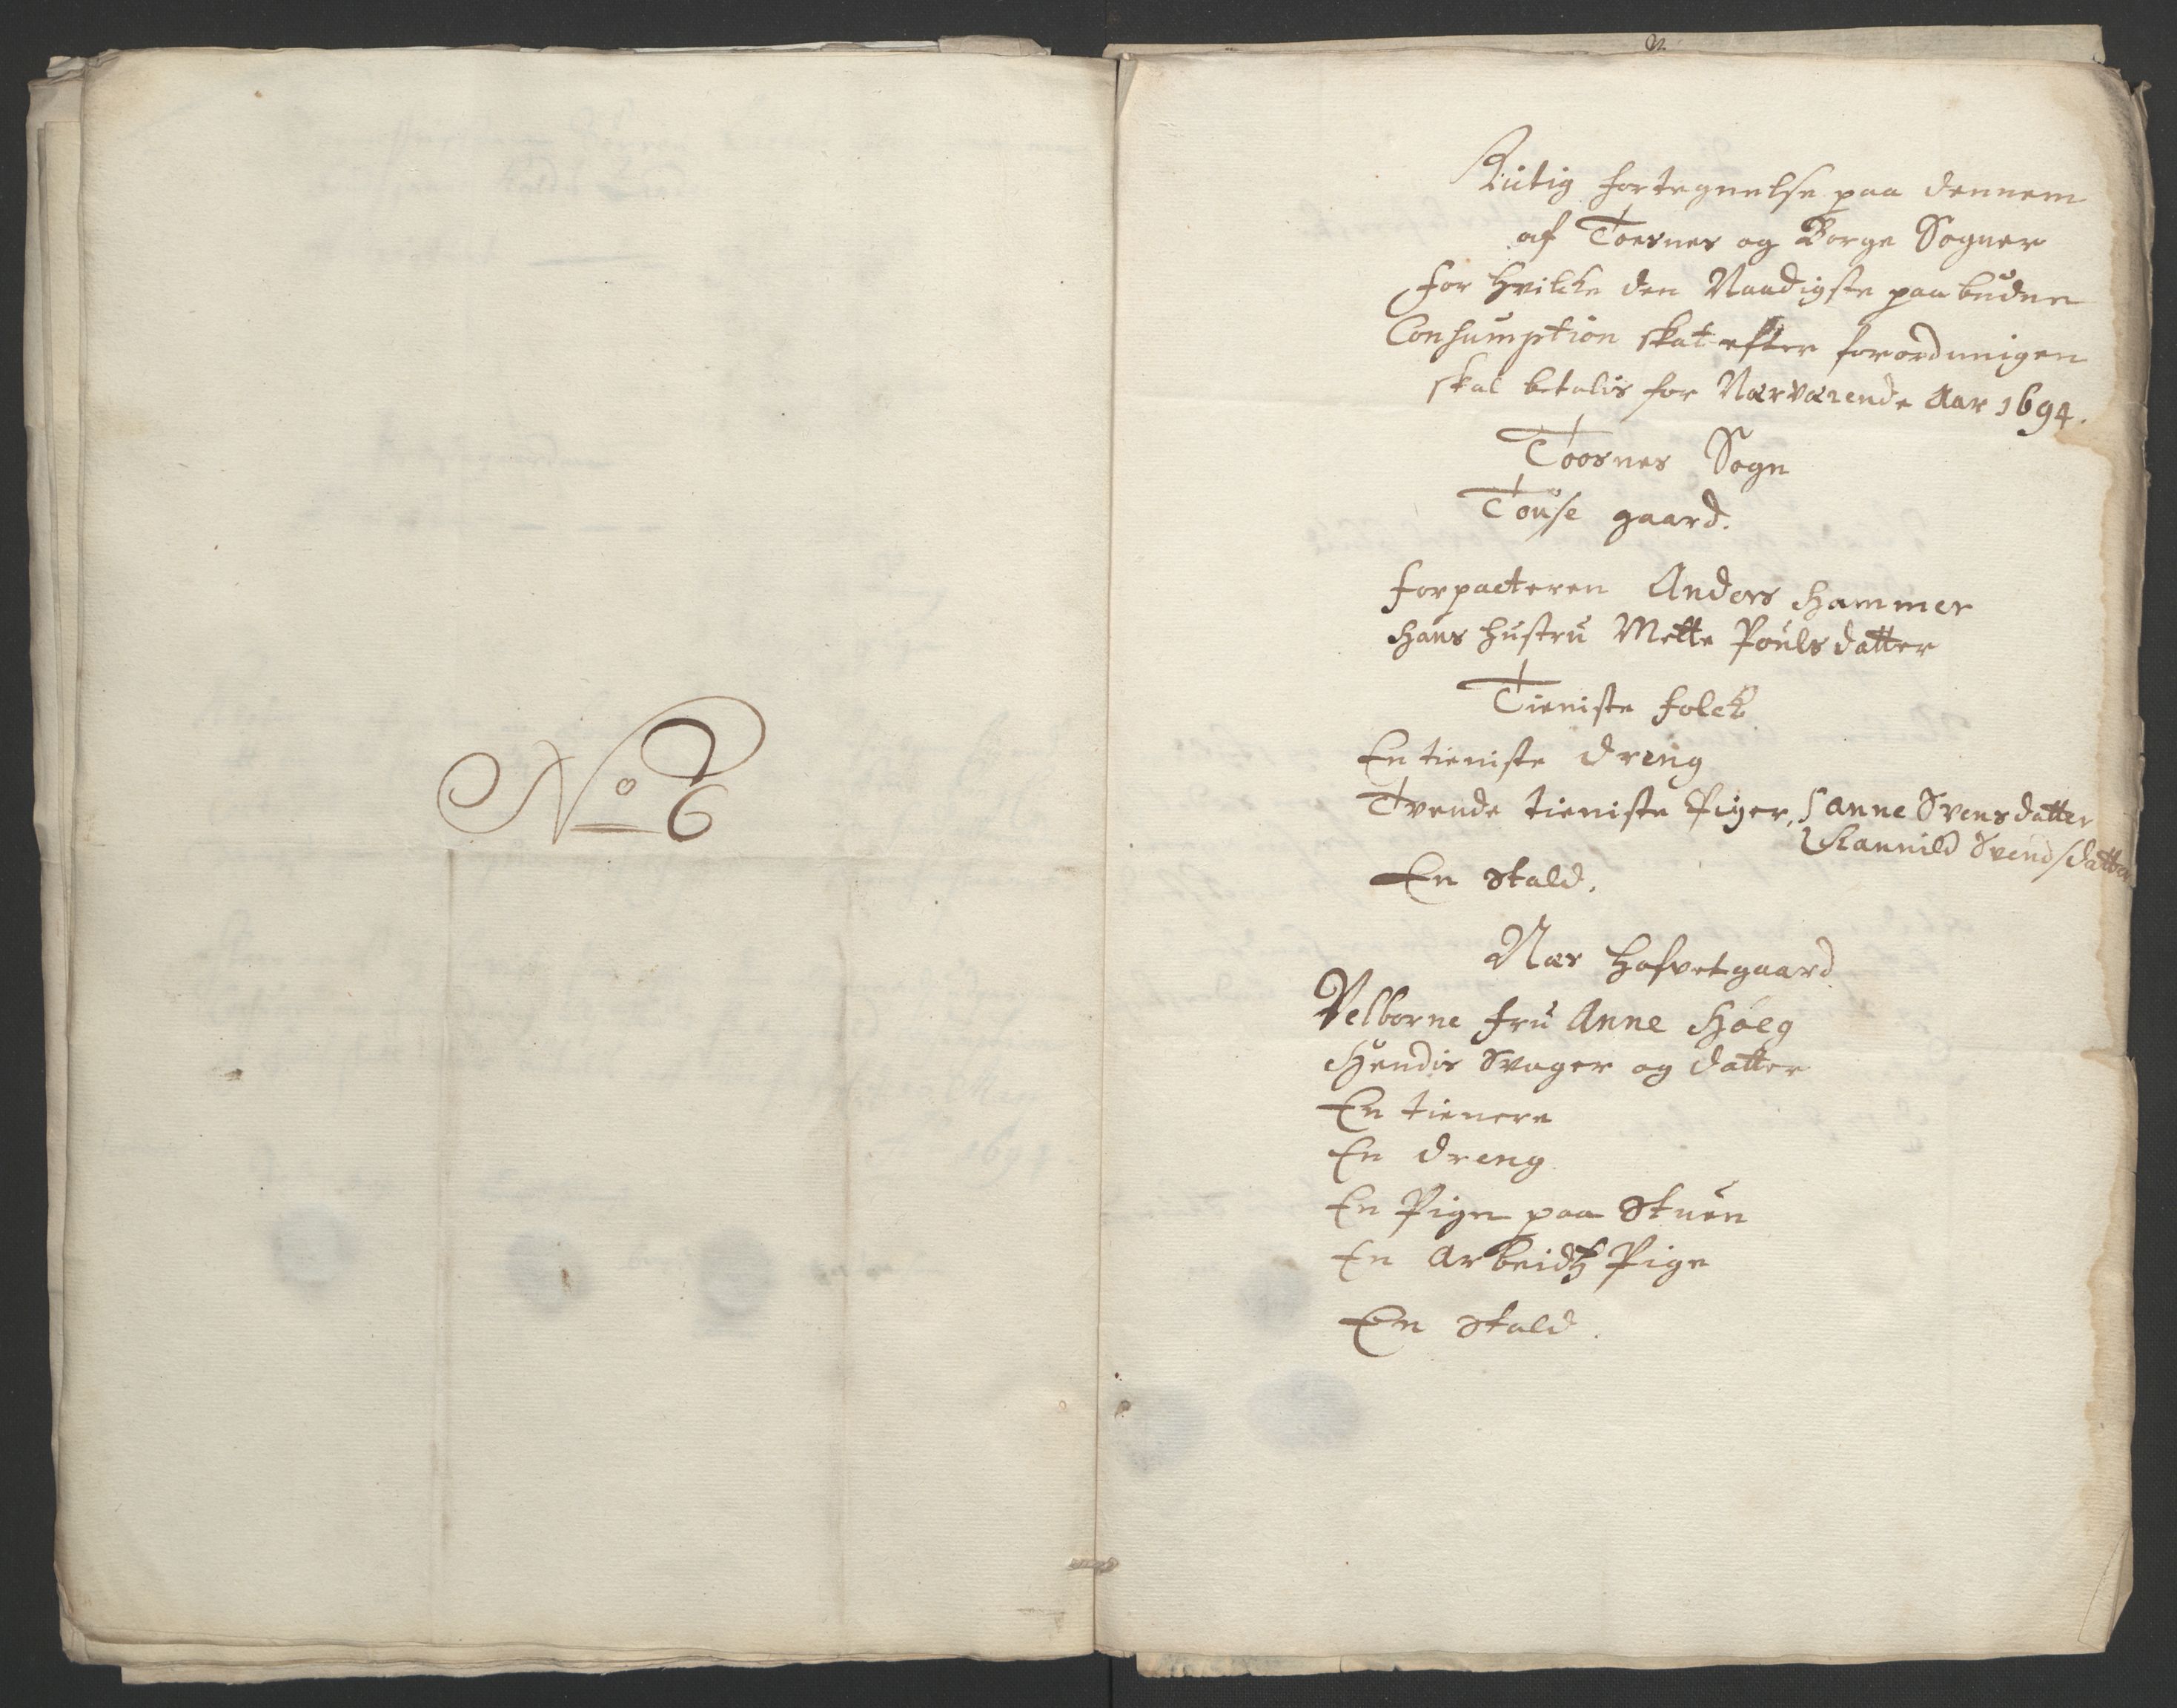 No 6
Rictig fortegnelse paa dennem
af Toesnes og Borge Sogner
for hvilcke den Naadigste paabudne
Consumption skat efter forordningen
skal betalis for Nærværende Aar 1694.
Toosnes Sogn
Touse gaard.
forpacteren Anders Hammer
Hans hustru Mette Poulsdatter
Tieniste folck
En tieniste dreng
Tvende tieniste Piger, Anne Svensdatter
Rannild Svendsdatter
En Stald.
Nes Hofvetgaard
Velborne fru Anne Høeg
Hendis Svager og datter
En tienere
En dreng
En Pige paa Stuen
En arbeidtz Pige
En Stald.